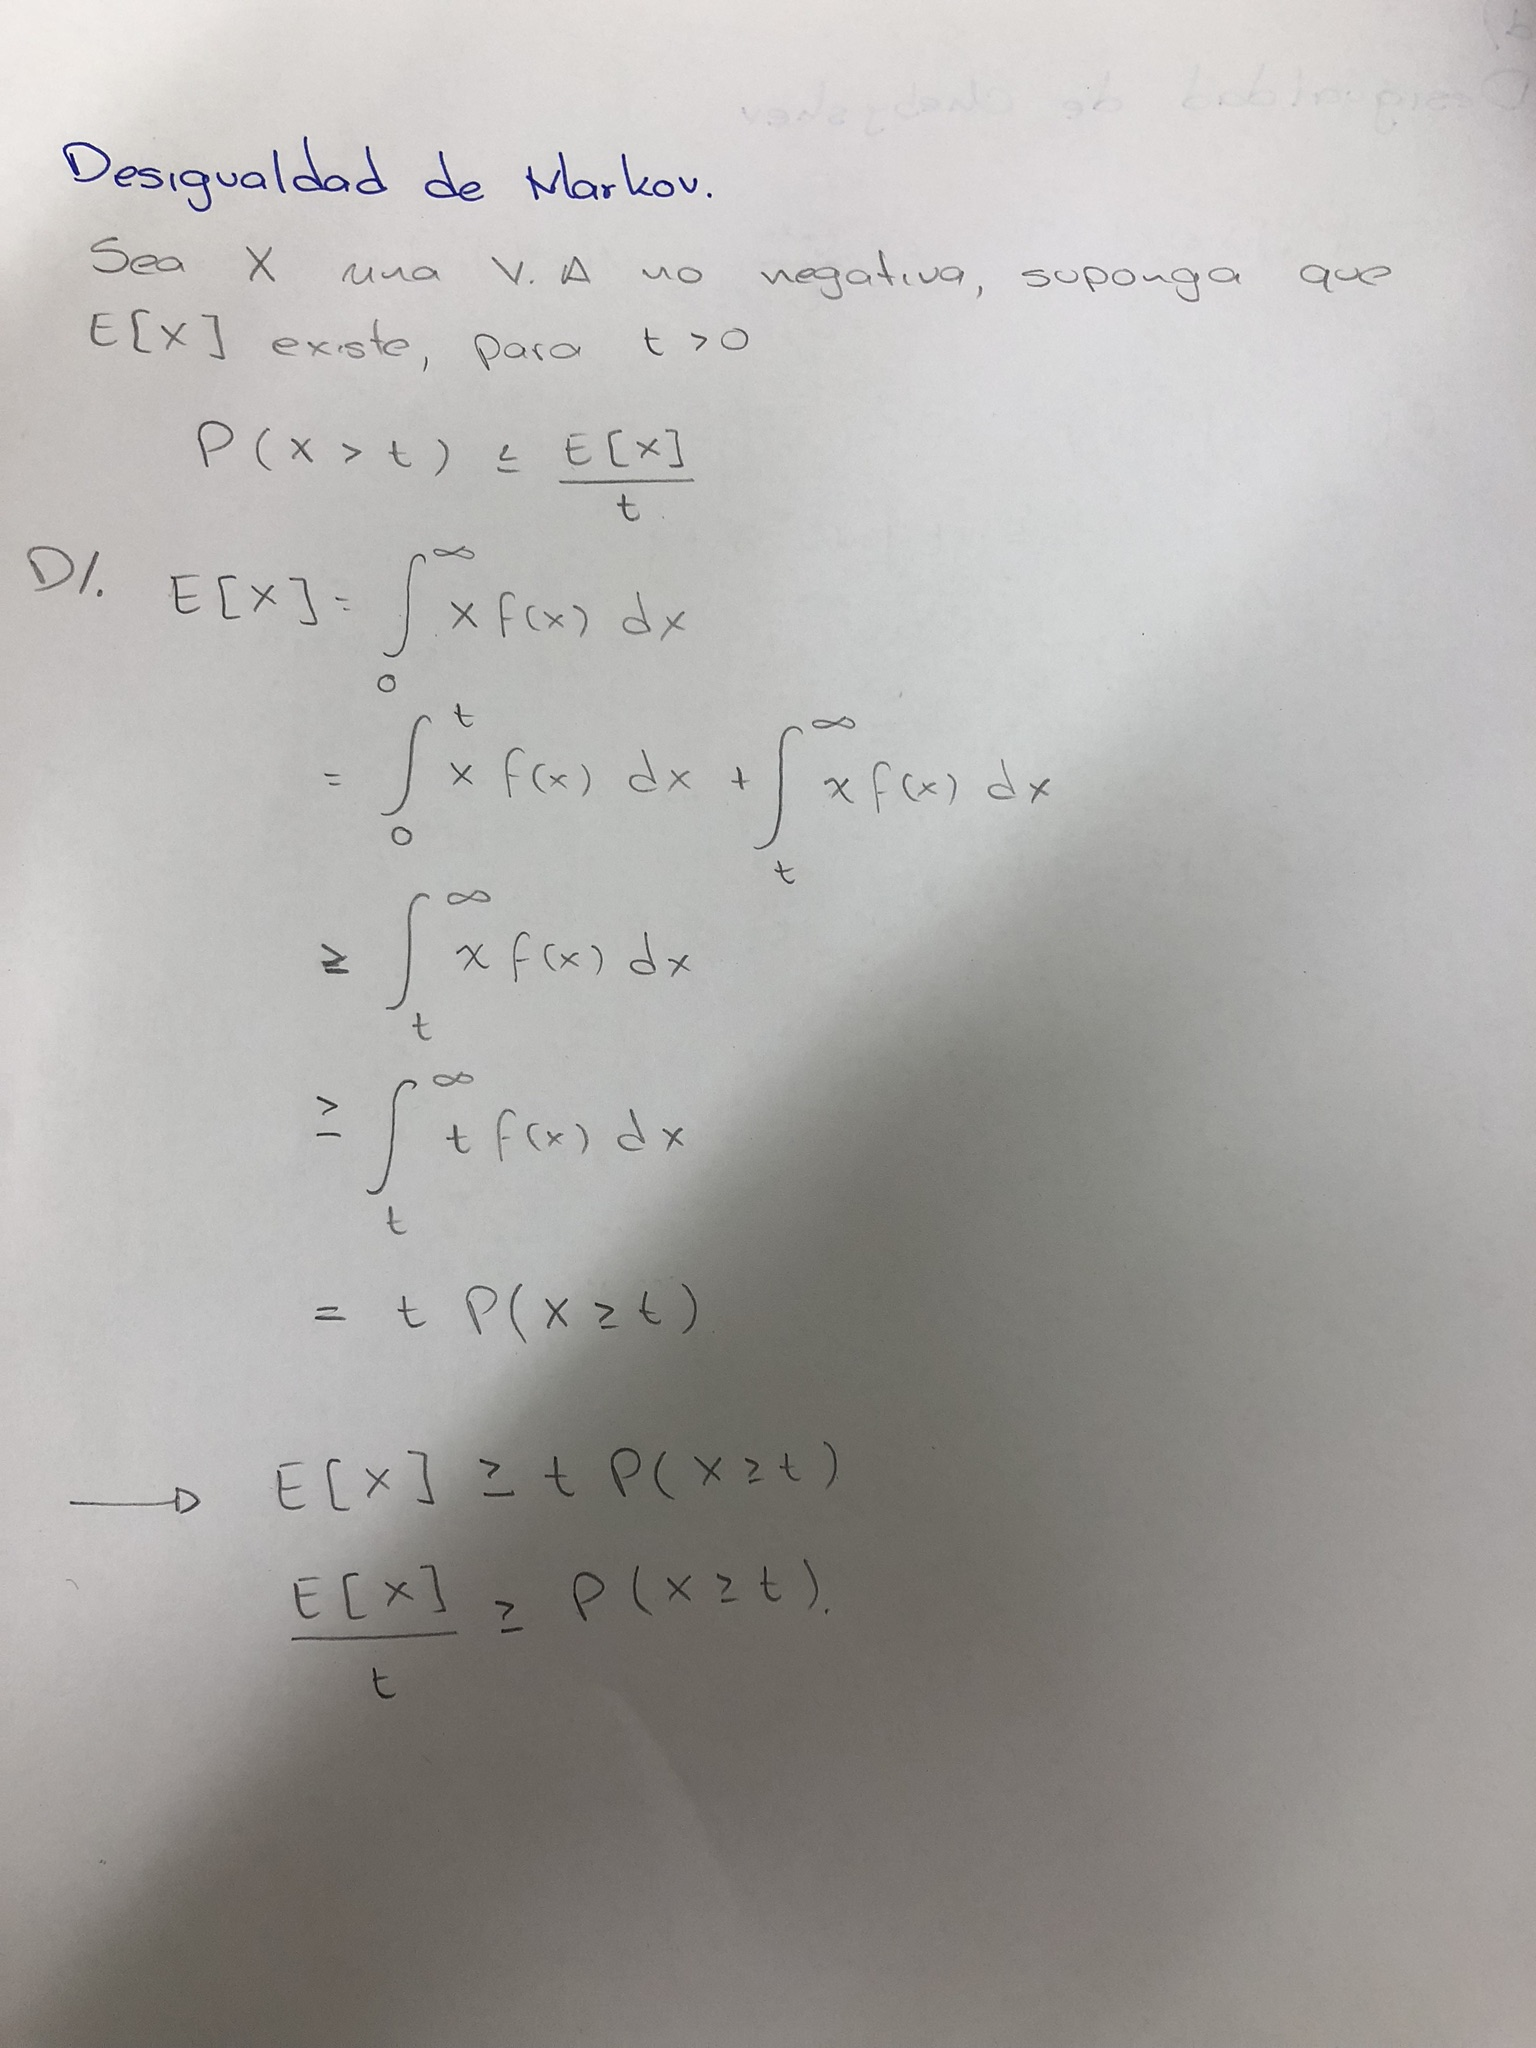 Desigualdad de Markov.
Sea X una V.A no negativa, suponga que
E[X] existe, para t>0
P(x>t) ≤ E[x]/t
D/. E[X] = ∫₀^∞ x f(x) dx
= ∫₀^t x f(x) dx + ∫ₜ^∞ x f(x) dx
≥ ∫ₜ^∞ x f(x) dx
≥ ∫ₜ^∞ t f(x) dx
= t P(X≥t)
→ E[x] ≥ t P(X≥t)
E[x]/t ≥ P(x≥t).
Desigualdad de Chebyshev